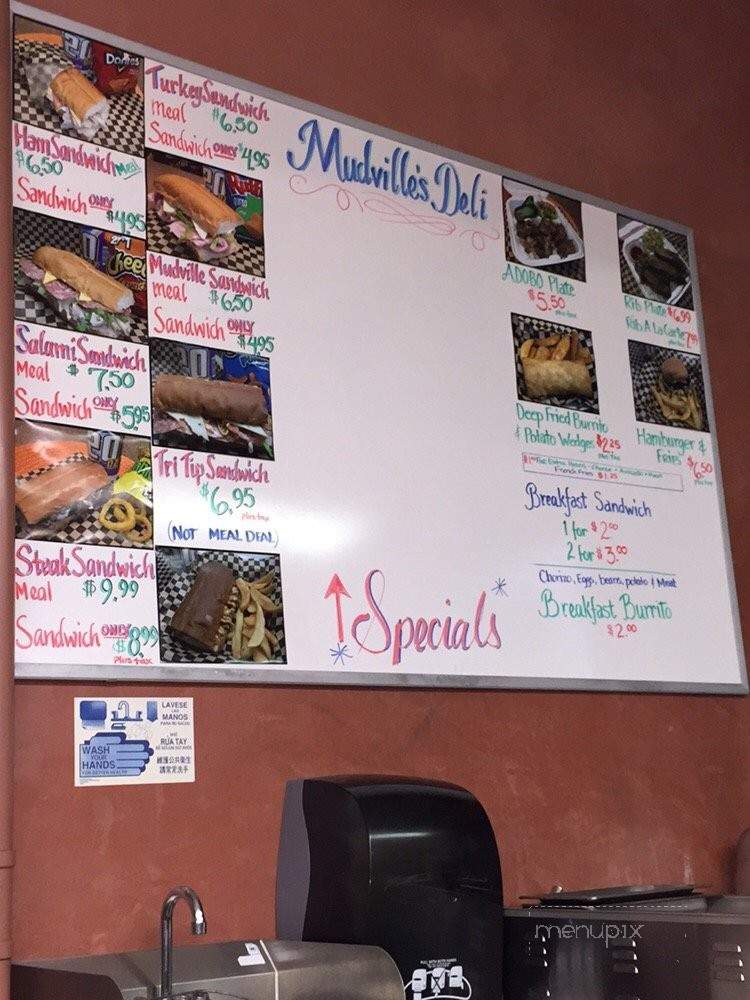 Mudville's Deli
Ham Sandwich Meal
$6.50
Sandwich ONLY
$4.95
Turkey Sandwich
meal $6.50
Sandwich ONLY $4.95
Mudville Sandwich
meal $6.50
Sandwich ONLY
$4.95
Salami Sandwich
Meal $7.50
Sandwich ONLY $5.95
Tri Tip Sandwich
$6.95
plus tax
(NOT MEAL DEAL)
Steak Sandwich
Meal $9.99
Sandwich ONLY $8.99
Plus tax
Specials
ADOBO Plate
$5.50
plus tax
Rib Plate $6.99
Rib A La Carte 7.99
plus tax
Deep Fried Burrito
& Potato Wedges $2.25
plus tax
French Fries $1.25
Hamburger &
Fries $6.50
plus tax
Breakfast Sandwich
1 for $2.00
2 for $3.00
Chorizo, Eggs, beans, potato & Meat
Breakfast Burrito
$2.00
Doritos
LAVESE
LAS
MANOS
PARA SU SALUD
RỬA TAY
WASH
YOUR
HANDS
FOR BETTER HEALTH
維護公共衛生
請常洗手
PULL WITH BOTH HANDS
menupix